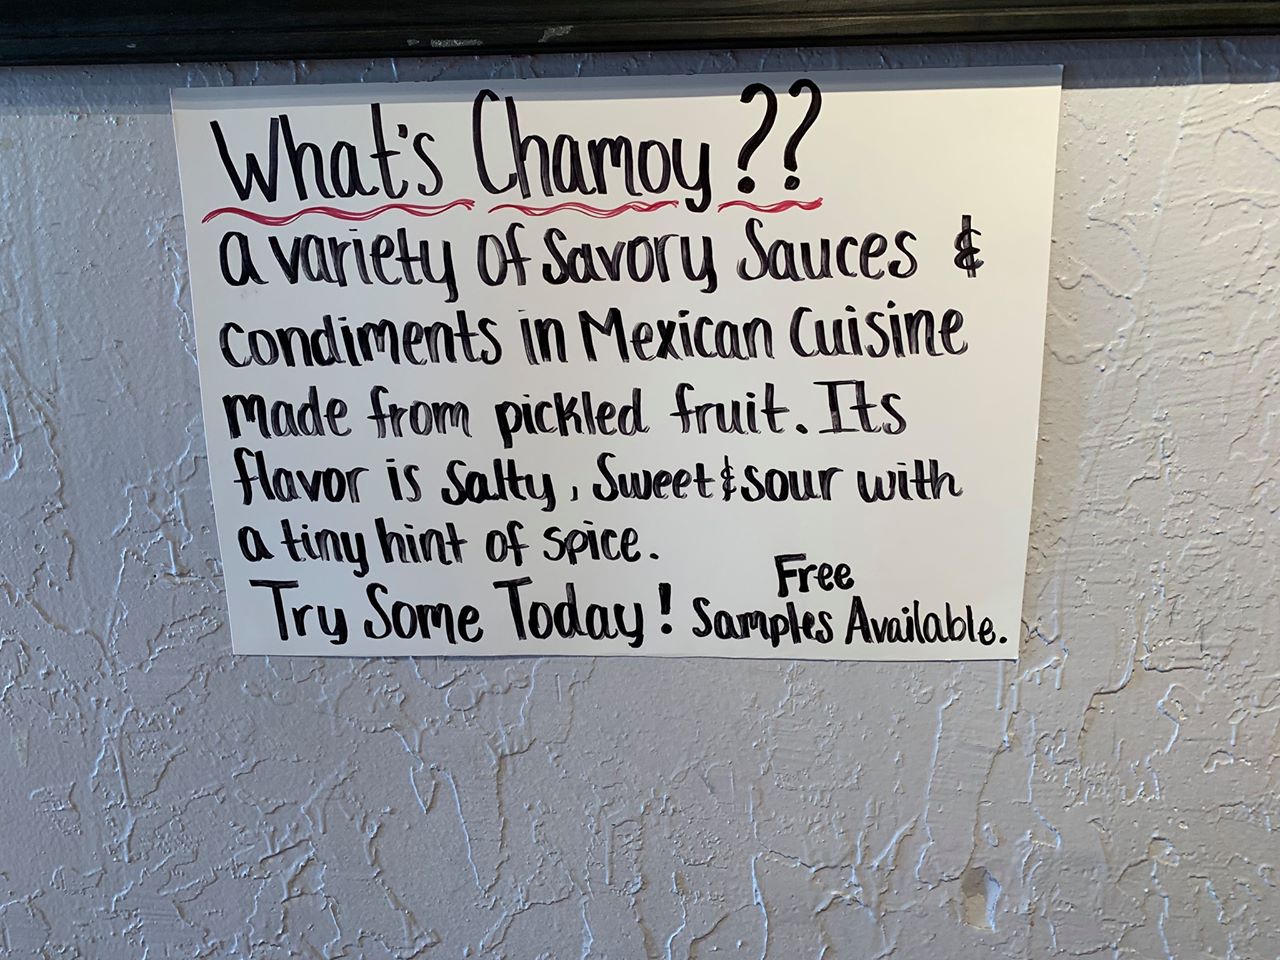 What's Chamoy??
a variety of Savory Sauces &
condiments in Mexican Cuisine
made from pickled fruit. Its
flavor is Salty, Sweet & sour with
a tiny hint of spice.
Try Some Today! Free Samples Available.